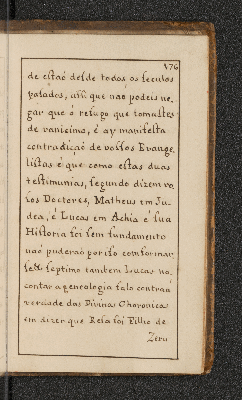 176
de estaõ desde todos os seculos
passados, assi que naõ podeis ne,
gar que o refugo que tomastes
de vanissimo, é ay manifesta
contradicaõ de vossos Evange,
listas é que como estas duas
testimunias, segundo dizem vo,
sos Doctores, Matheus em Ju,
dea, é Lucas em Achia é sua
Historia foi sem fundamento
naõ puderaõ por isso conformar
se & septimo tambem Lucas na
contar a geneologia falo contra à
verdade das Divinas Choronicas
em dizer que Resa foi Filho de
Zeru